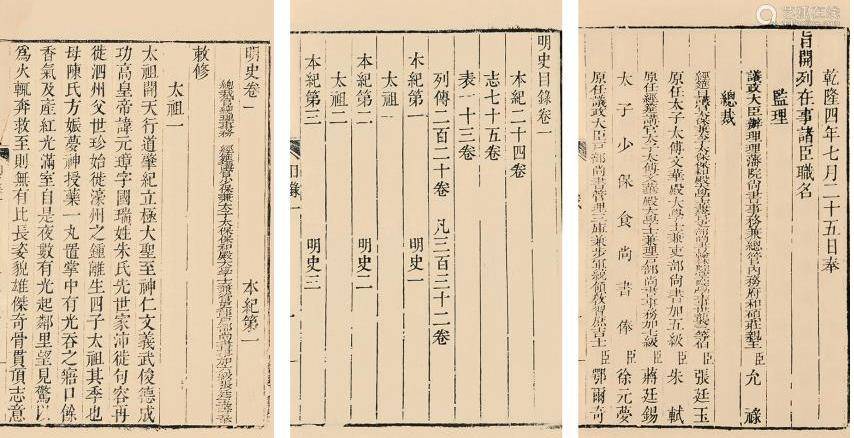 乾隆四年七月二十五日奉
旨開列在事諸臣職名
監理
議政大臣辦理理藩院尚書事務兼總管內務府和碩莊親王臣允祿
總裁
經筵日講
張廷玉
原任太子太傅文華殿大學士兼吏部尚書加五級臣朱軾
原任經筵講官太子太傅文華殿大學士兼理戶部尚書事務加七級臣蔣廷錫
太子少保食尚書俸臣徐元夢
原任議政大臣戶部尚書管理三庫兼步軍統領教習庶吉士臣鄂爾奇
明史目錄卷一
本紀二十四卷
志七十五卷
表一十三卷
列傳二百二十卷 凡三百三十二卷
本紀第一 明史一
太祖一
本紀第二 明史二
太祖二
本紀第三 明史三
目錄一
明史卷一
總裁官總理事務 經筵講官少保兼太子太保保和殿大學士兼管吏部戶部尚書事加六級張廷玉等奉
敕修
本紀第一
太祖一
太祖開天行道肇紀立極大聖至神仁文義武俊德成
功高皇帝諱元璋字國瑞姓朱氏先世家沛徙句容再
徙泗州父世珍始徙濠州之鍾離生四子太祖其季也
母陳氏方娠夢神授藥一丸置掌中有光吞之寤口餘
香氣及產紅光滿室自是夜數有光起鄰里望見驚以
為火輒奔救至則無有比長姿貌雄傑奇骨貫頂志意